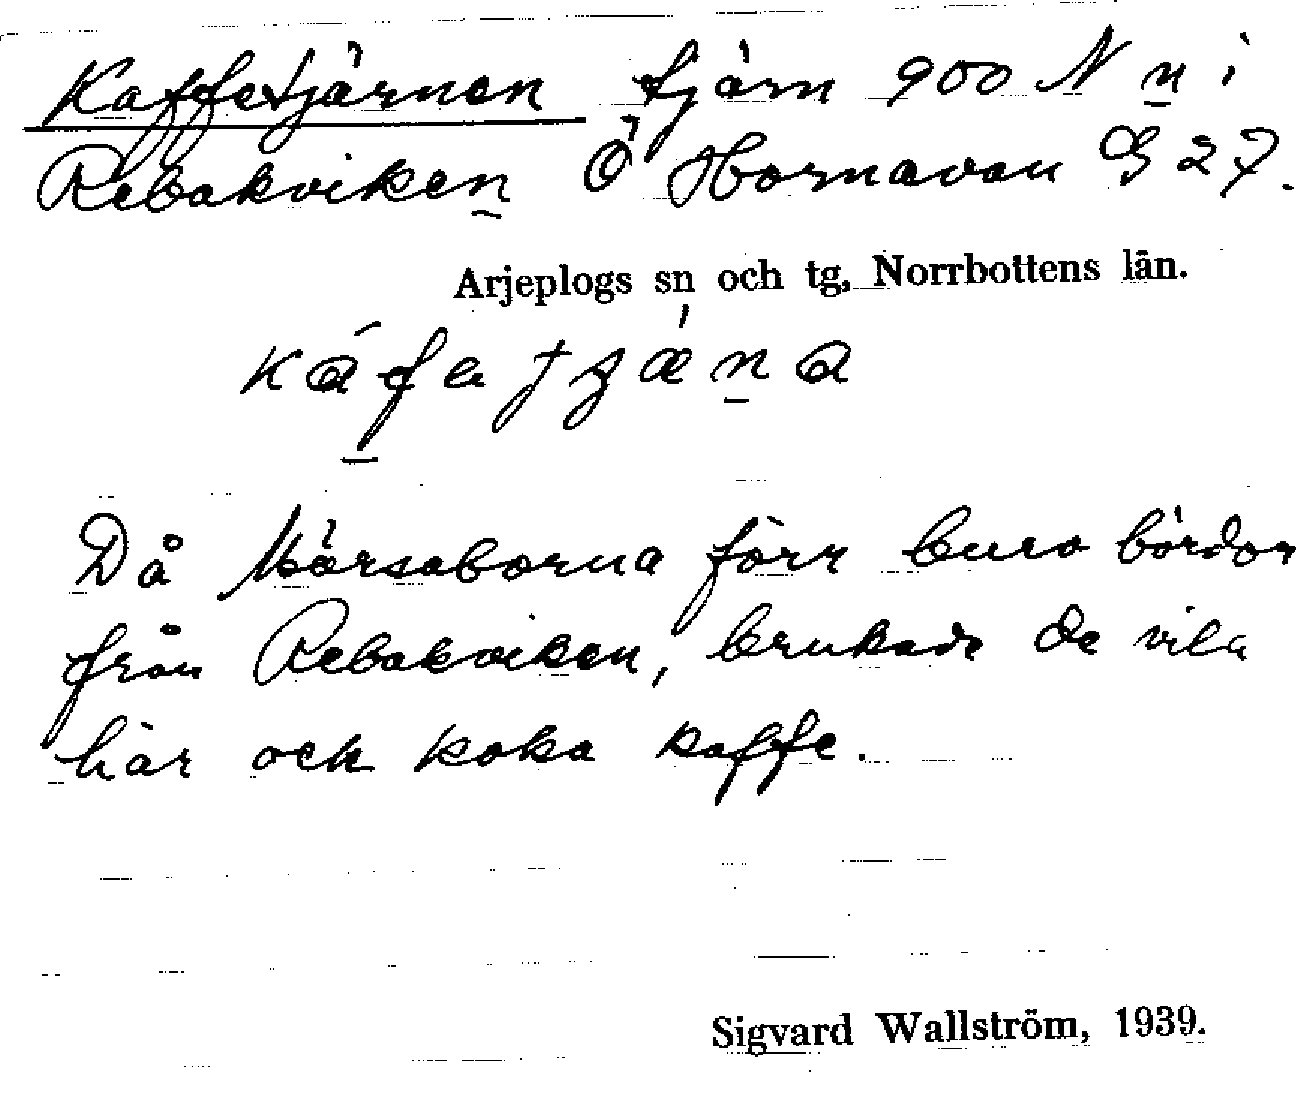 Kaffetjärnen tjärn 900 N n i
Rebakviken Ö Hornavan G 27.
Arjeplogs sn och tg, Norrbottens län.
káfatjæ̀na
Då Mörsaborna förr buro bördor
från Rebakviken, brukade de vila
här och koka kaffe.
Sigvard Wallström, 1939.